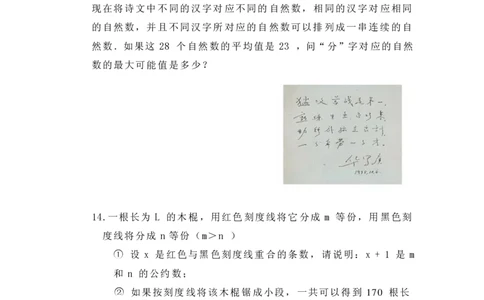 现在将诗文中不同的汉字对应不同的自然数，相同的汉字对应相同
的自然数，并且不同汉字所对应的自然数可以排列成一串连续的自
然数．如果这 28 个自然数的平均值是 23 ，问“分”字对应的自然
数的最大可能值是多少？
一分辛苦一分才
华罗庚
14.一根长为 L 的木棍，用红色刻度线将它分成 m 等份，用黑色刻
度线将分成 n 等份（m＞n ）
① 设 x 是红色与黑色刻度线重合的条数，请说明：x + 1 是 m
和 n 的公约数；
② 如果按刻度线将该木棍锯成小段，一共可以得到 170 根长